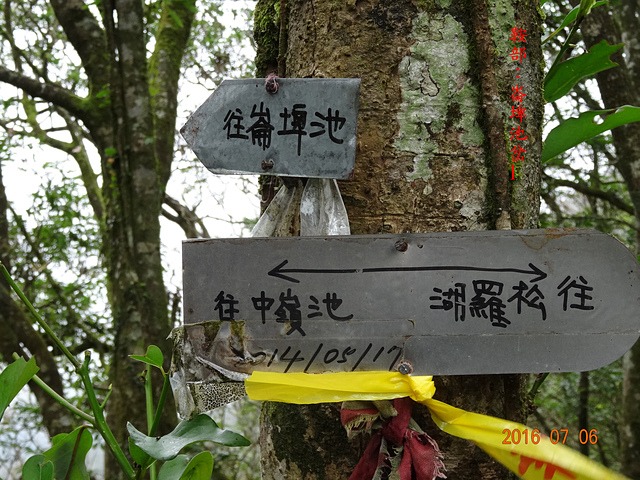 往崙埤池
往中嶺池
湖羅松往
2014/05/17
2016 07 06